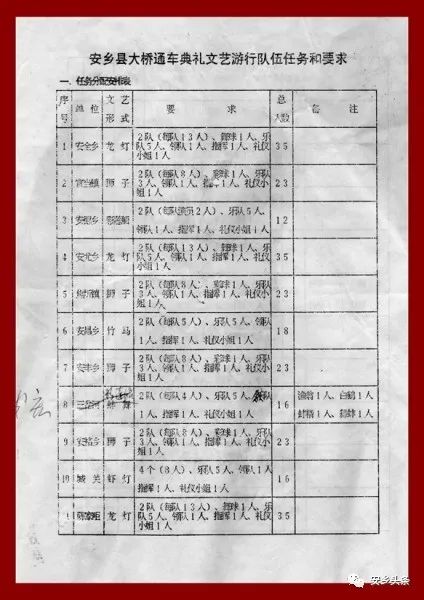 安乡县大桥通车典礼文艺游行队伍任务和要求
一、任务分配安排表
序号 单位 文艺形式 要求 总人数 备注
1 安全乡 龙灯 2队（每队13人）、彩球1人、乐
队5人、领队1人、指挥1人、礼仪
小姐1人 35
2 狮子 2队（每队8人）、彩球1人、乐队
3人、领队1人、指挥1人、礼仪小
姐1人 23
3 2队（每队演员2人）、乐队5人、
领队1人、指挥1人、礼仪小姐1人 12
4 龙灯 2队（每队13人）、彩球1人、乐
队5人、领队1人、指挥1人、礼仪
小姐1人 35
5 狮子 2队（每队8人）、彩球1人、乐队
3人、领队1人、指挥1人、礼仪小
姐1人 23
6 安昌乡 竹马 2队（每队5人）、乐队5人、领队
1人、指挥1人、礼仪小姐1人 18
7 安丰乡 狮子 2队（每队8人）、彩球1人、乐队
3人、领队1人、指挥1人、礼仪小
姐1人 23
8 2队（每队4人）、乐队5人、领队
1人、指挥1人、礼仪小姐1人 16 渔翁1人、白鹤1人
蚌精1人、1人
9 狮子 2队（每队8人）、彩球1人、乐队
3人、领队1人、指挥1人、礼仪小
姐1人 23
10 城关 虾灯 4个（8人）、乐队5人、领队1人
指挥1人、礼仪小姐1人 16
11 龙灯 2队（每队13人）、彩球1人、乐
队5人、领队1人、指挥1人、礼
仪小姐1人 35
安乡头条